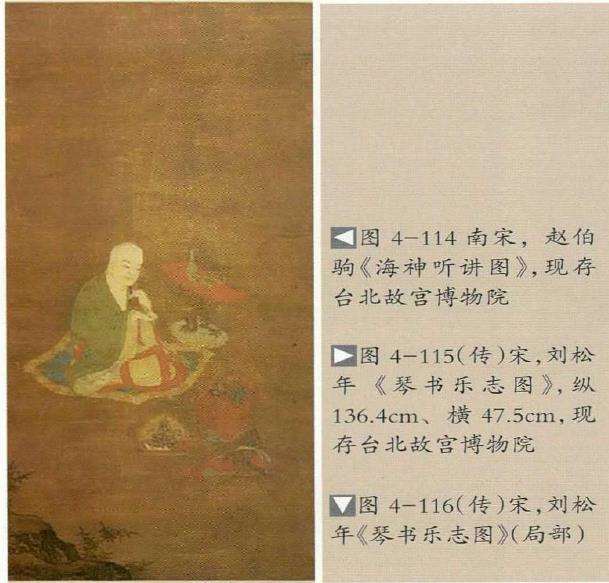 ◀图 4-114 南宋，赵伯
驹《海神听讲图》，现存
台北故宫博物院
▶图 4-115(传)宋，刘松
年《琴书乐志图》，纵
136.4cm、横 47.5cm，现
存台北故宫博物院
▼图 4-116(传)宋，刘松
年《琴书乐志图》(局部)